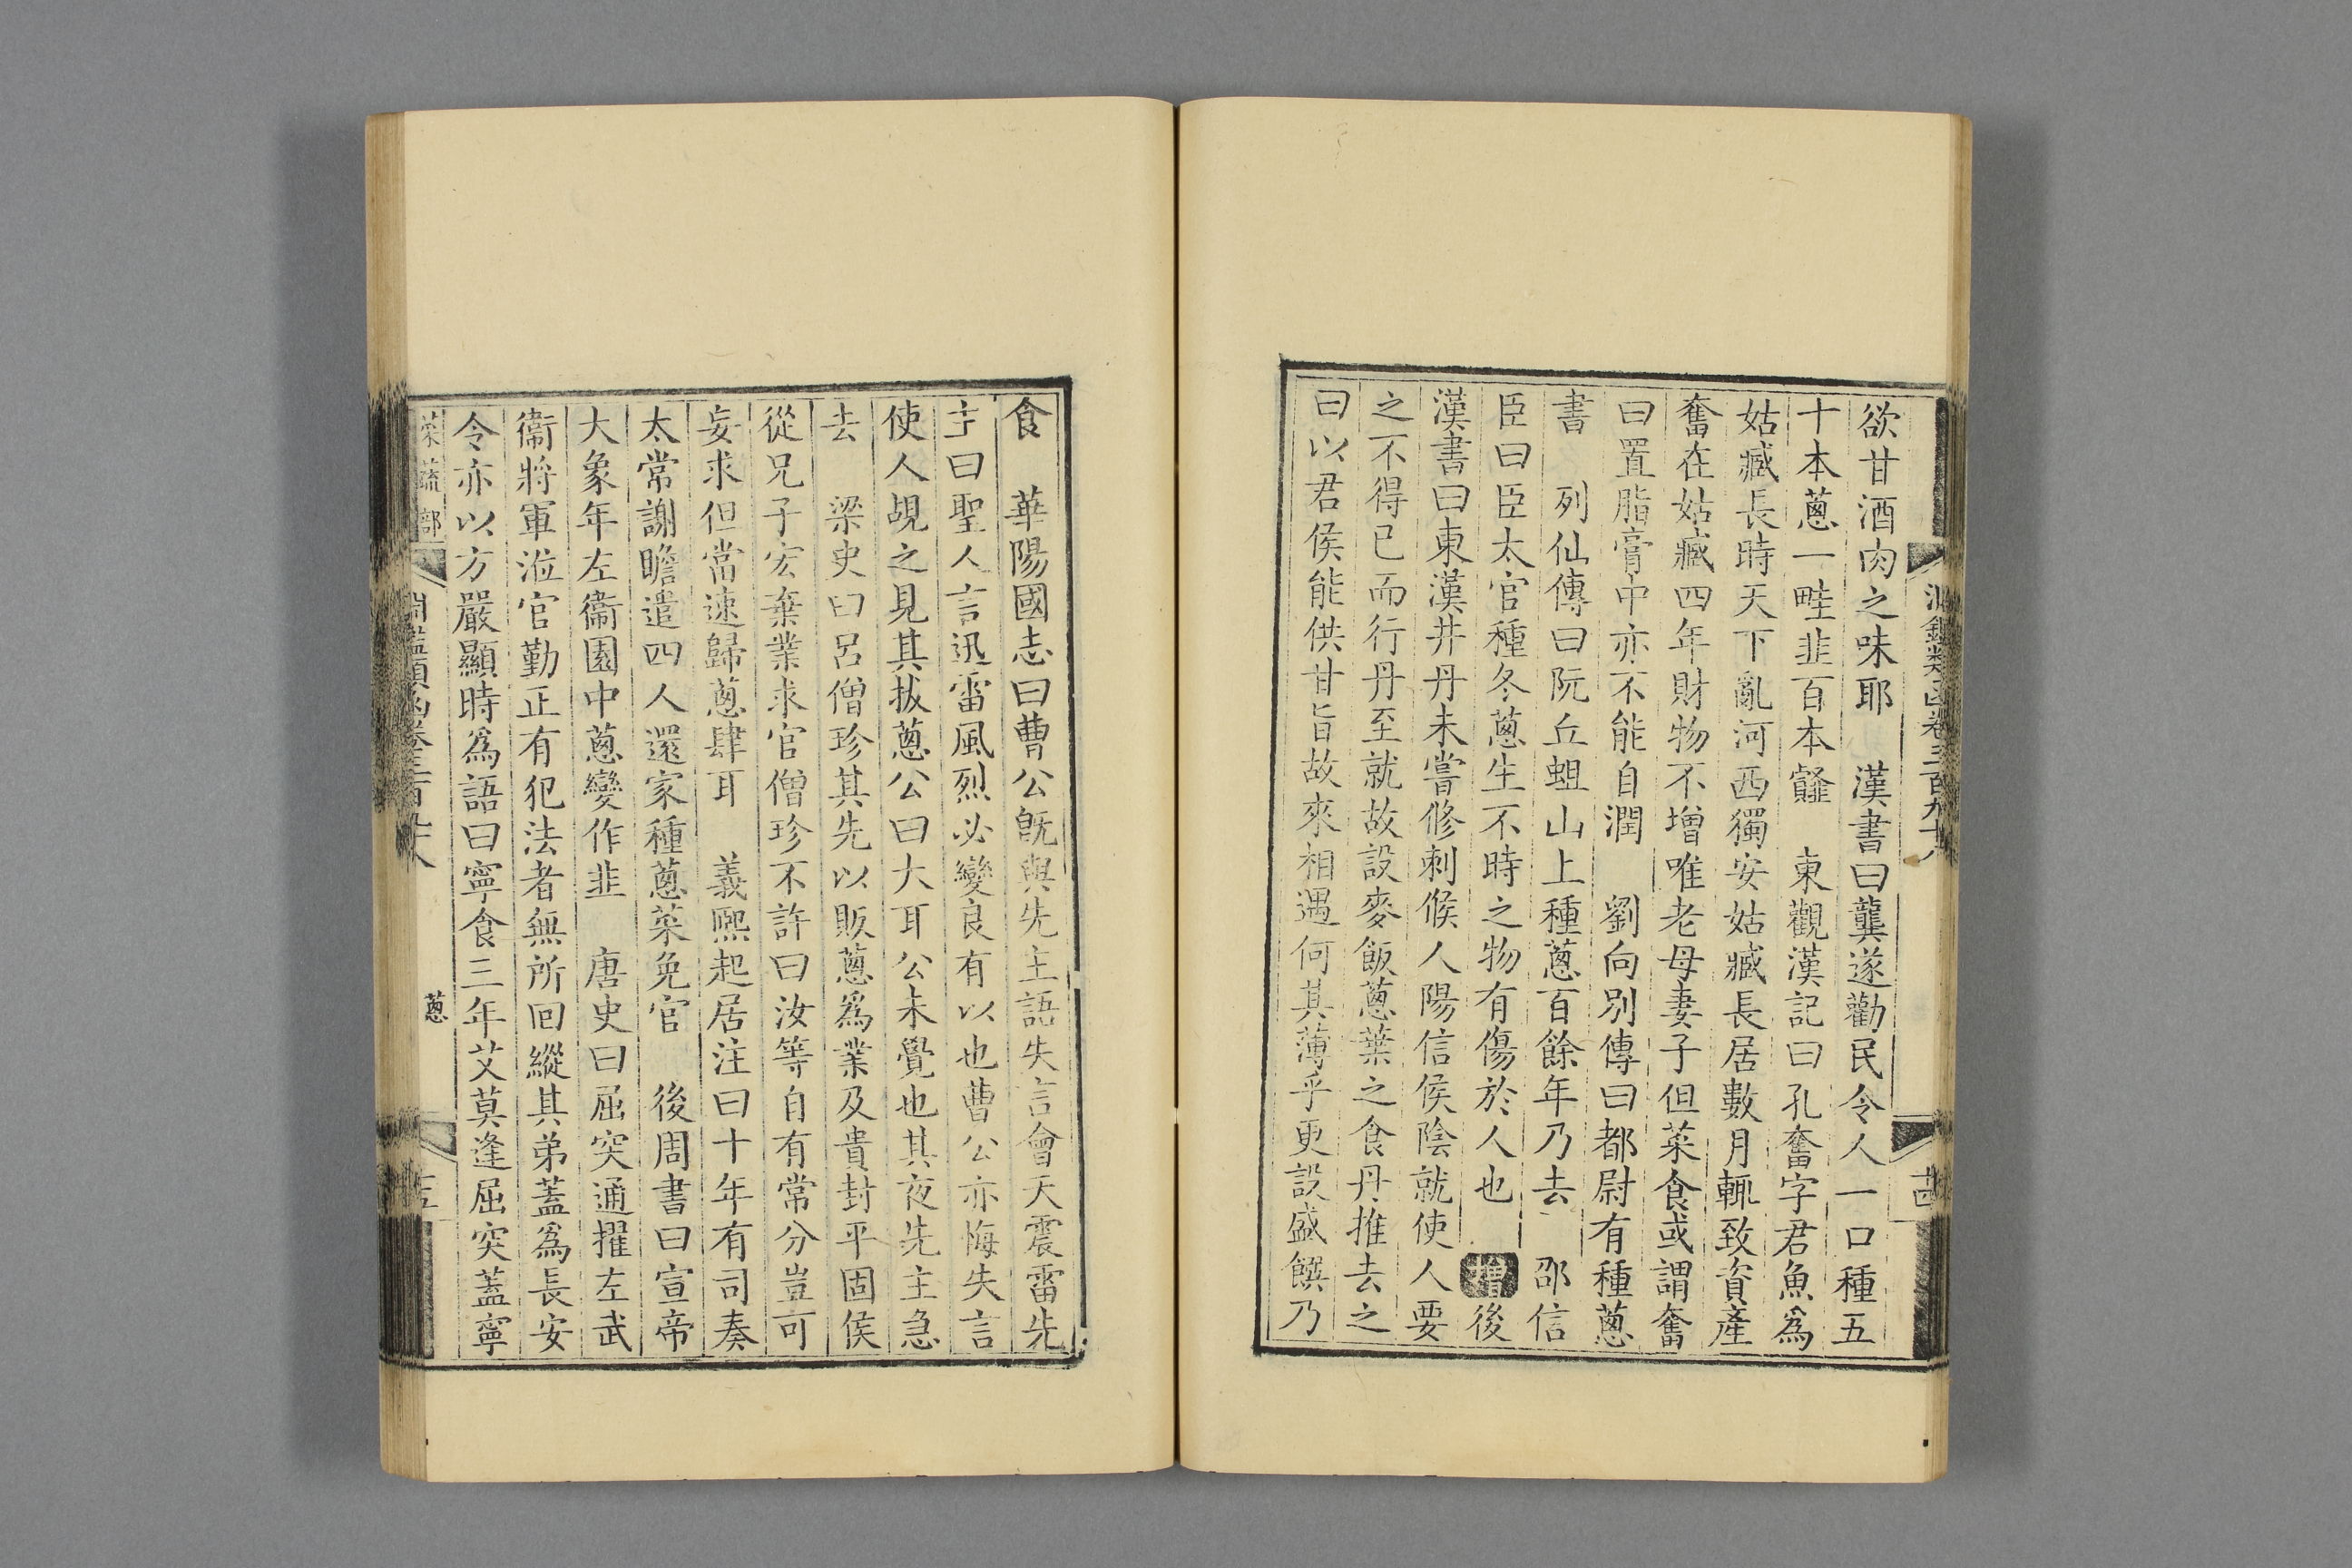 欲甘酒肉之味耶　漢書曰龔遂勸民令人一口種五
十本蔥一畦韭百本䪥　東觀漢記曰孔奮字君魚爲
姑臧長時天下亂河西獨安姑臧長居數月輒致資產
奮在姑臧四年財物不增唯老母妻子但菜食或謂奮
曰置脂膏中亦不能自潤　劉向別傳曰都尉有種蔥
書　列仙傳曰阮丘蛆山上種蔥百餘年乃去　邵信
臣曰臣太官種冬蔥生不時之物有傷於人也　增後
漢書曰東漢井丹未嘗修刺候人陽信侯陰就使人要
之不得已而行丹至就故設麥飯蔥葉之食丹推去之
曰以君侯能供甘旨故來相遇何其薄乎更設盛饌乃
食　華陽國志曰曹公旣與先主語失言會天震雷先
主曰聖人言迅雷風烈必變良有以也曹公亦悔失言
使人覘之見其拔蔥公曰大耳公未覺也其夜先主急
去　梁史曰呂僧珍其先以販蔥爲業及貴封平固侯
從兄子宏棄業求官僧珍不許曰汝等自有常分豈可
妄求但當速歸蔥肆耳　義熙起居注曰十年有司奏
太常謝瞻遣四人還家種蔥菜免官　後周書曰宣帝
大象年左衞園中蔥變作韭　唐史曰屈突通擢左武
衞將軍涖官勤正有犯法者無所回縱其弟蓋爲長安
令亦以方嚴顯時爲語曰寧食三年艾莫逢屈突蓋寧
菜蔬部　淵鑑類函卷三百九十八　蔥